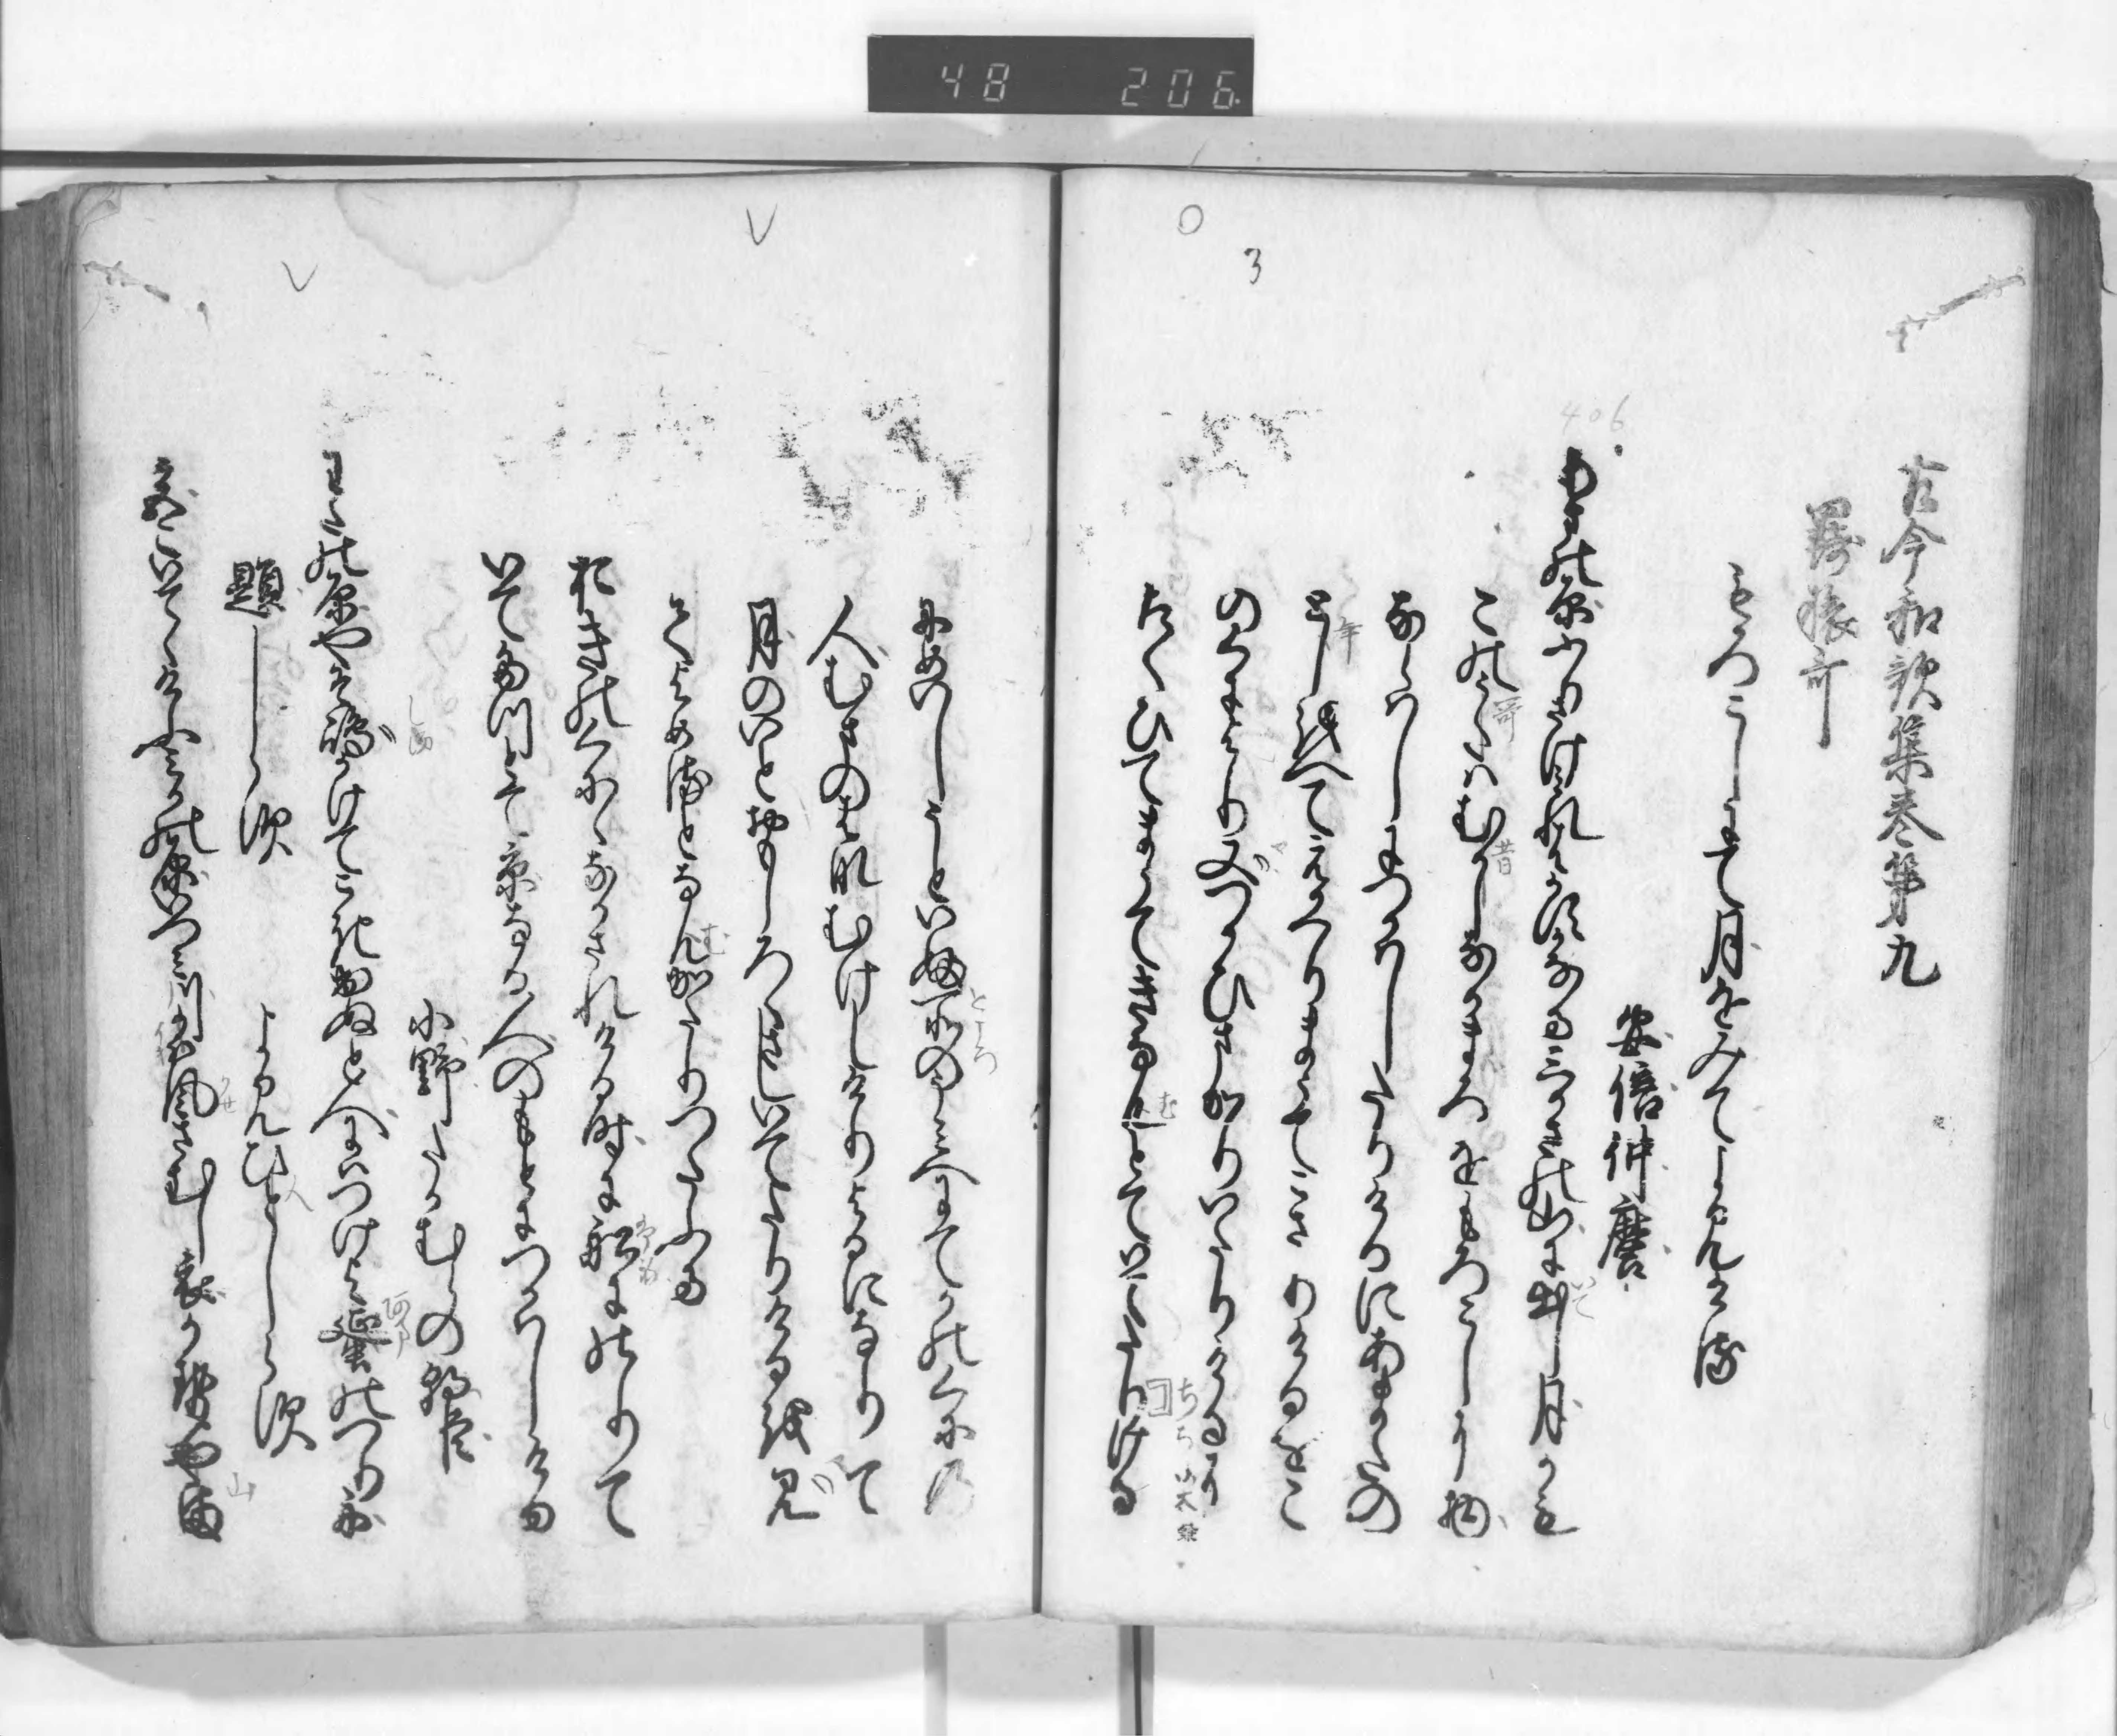 48 206
古今和歌集巻第九
羇旅哥
もろこしにて月をみてよみける
安倍仲麿
406
あまの原ふりさけみれはかすかなる三かさの山に出し月かも
この哥はむかしなかまろをもろこしに物
ならはしにつかはしたりけるにあまたの
としをへてえかへりまうてこさりけるをこ
のくによりまたつかひまかりいたりけるに
たくひてまうてきなんとていてたちける
にめいしうといふ所のうみへにてかのくにの
人むまのはなむけしけりよるになりて
月のいとおもしろくさしいてたりけるを見
てよめるとなんかたりつたふる
おきのくにゝなかされける時に船にのりて
いてたつとて京なる人のもとにつかはしける
小野たかむらの朝臣
わたの原やそ嶋かけてこきいてぬと人にはつけよ蜑のつり舟
題しらす
よみ人しらす
都いてゝけふみかの原いつみ川かは風さむし衣かせ山